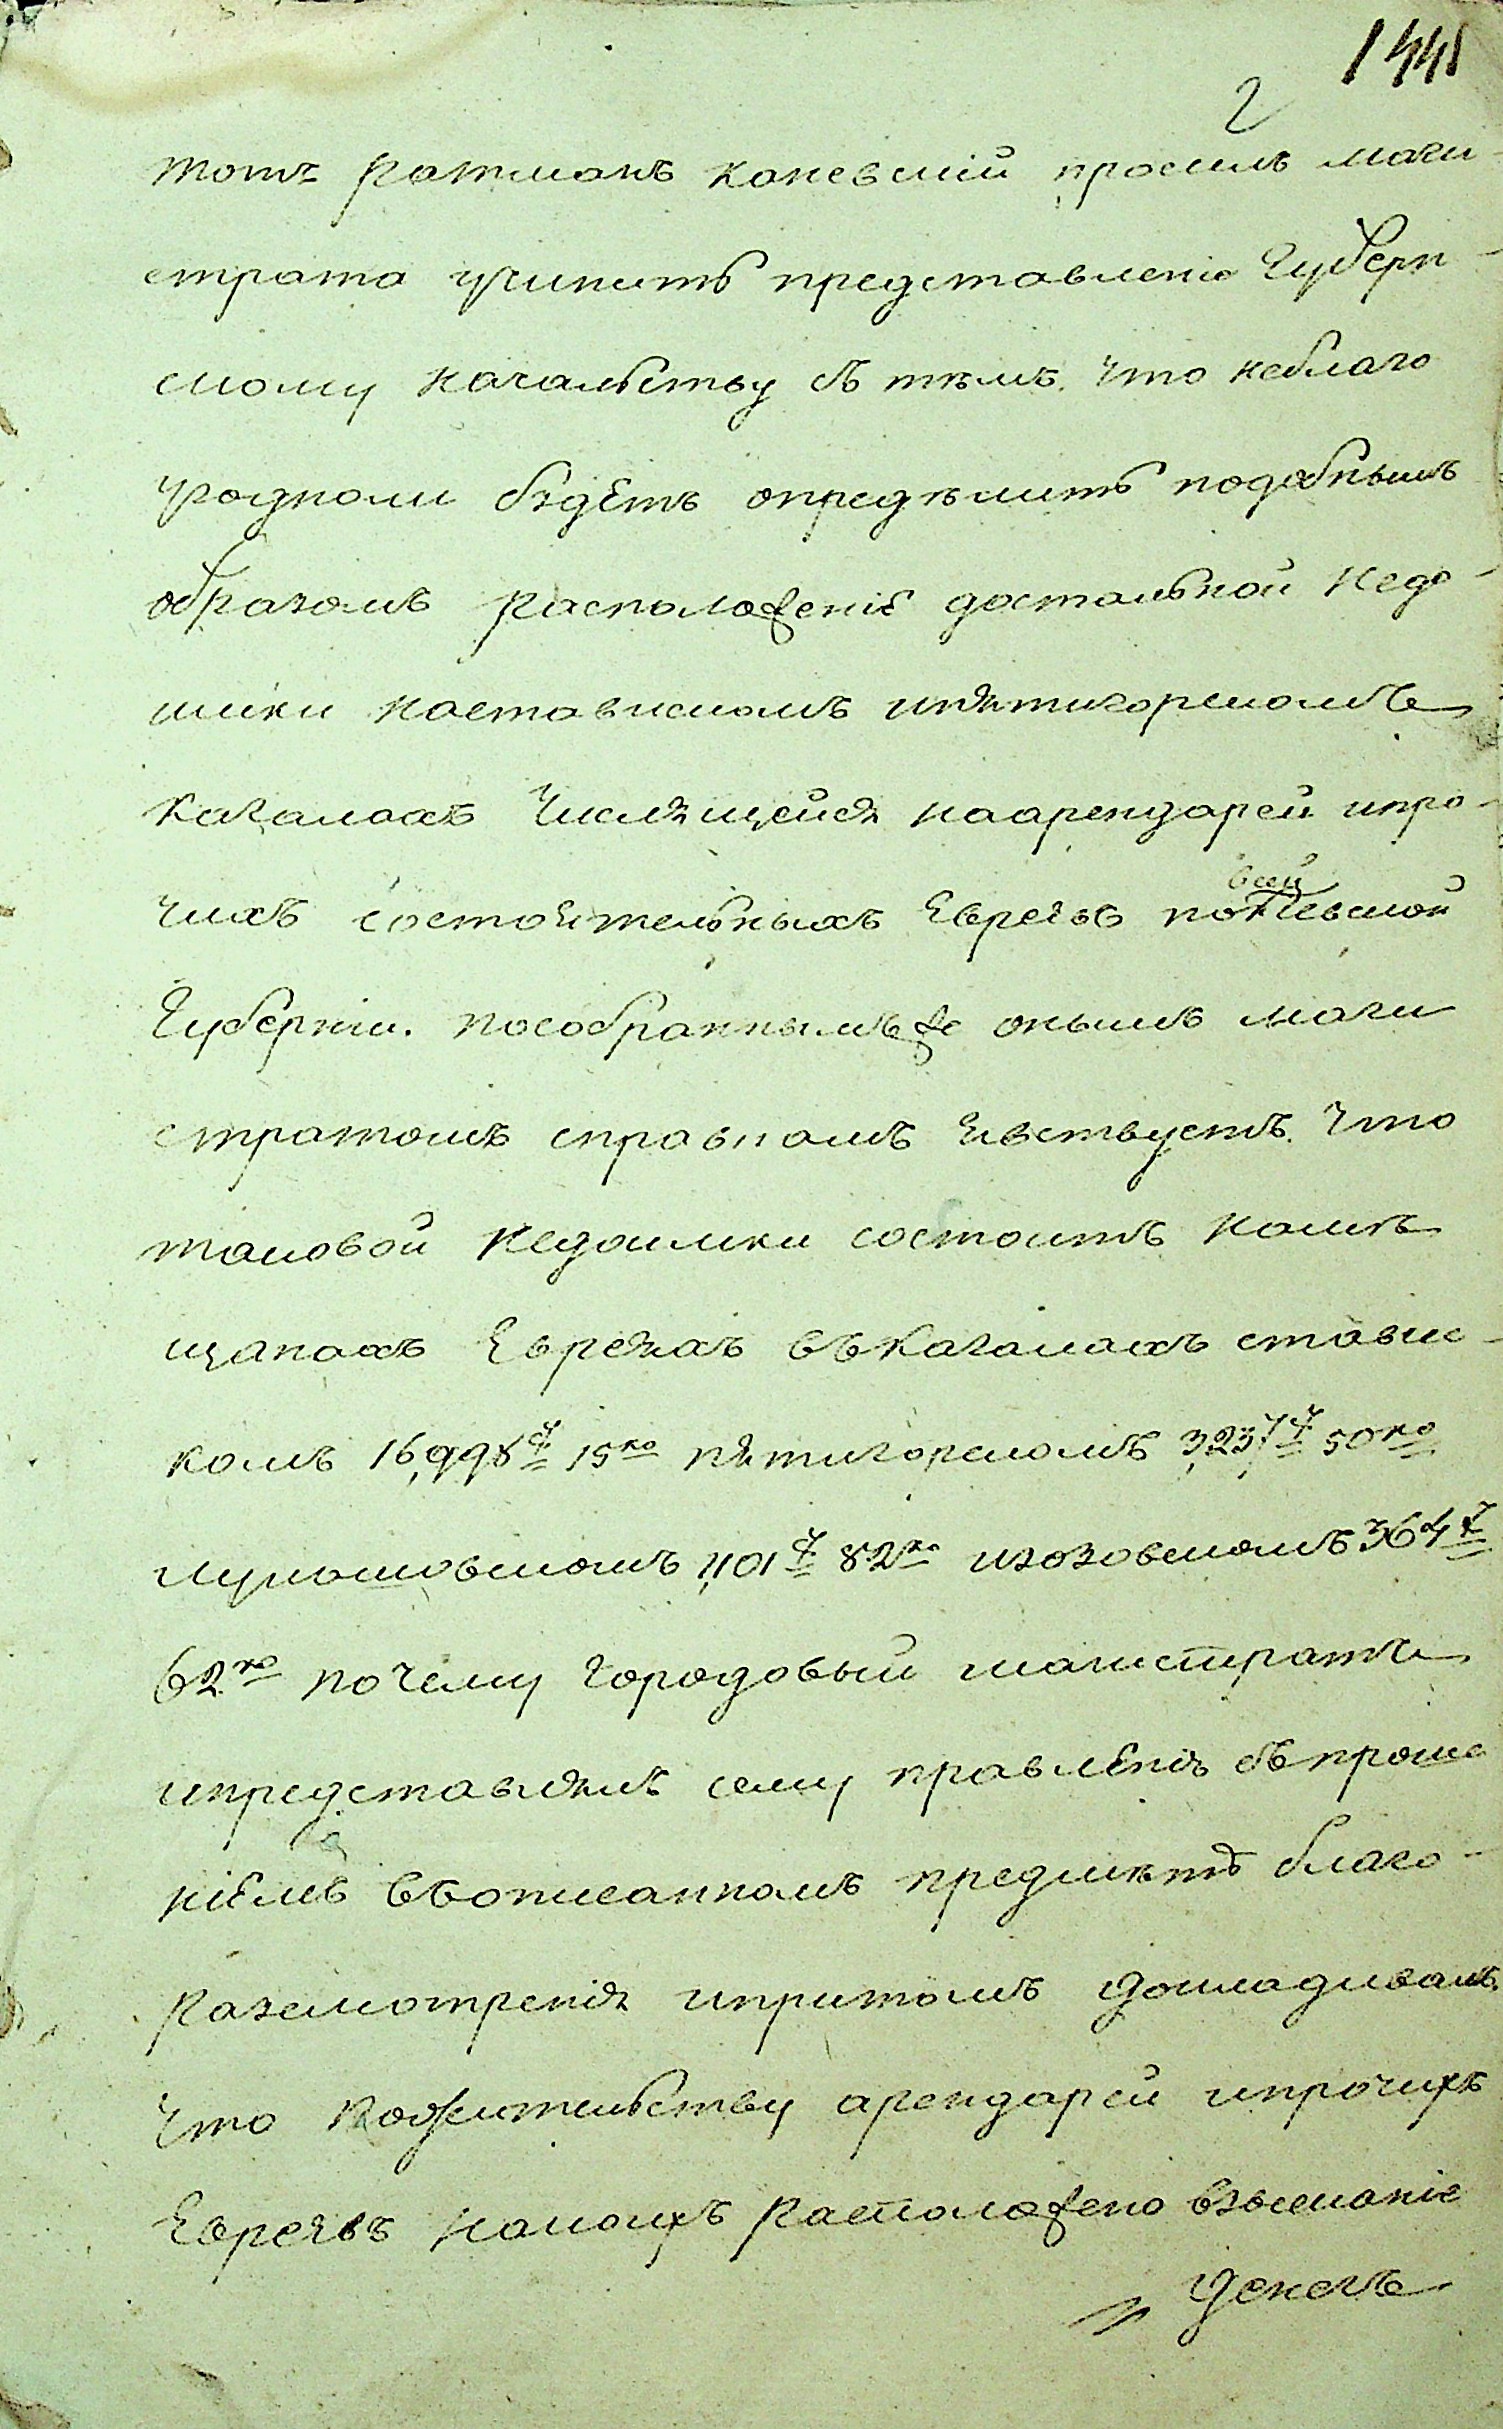 1441
2
тотъ Ратманъ каневскій просилъ маги-
страта учинить представленіе Губерн-
скому начальству съ тѣмъ. что неблаго
угодноли бѫдетъ определить подобнымъ
образомъ расположеніе достальной недо-
имки наставискомъ ипятигорскомъ
кагалахъ числящейся наарендарей ипро-
чихъ состоятельныхъ Евреевъ по всей киевской
Губерніи. пособраннымъже онымъ маги
стратомъ справкамъ явствуетъ. что
таковой недоимки состоитъ намѣ
щанахъ Евреяхъ въкагалахъ стависс-
комъ 16,998 15ко пятигорскомъ 3,237 50ко
1,101 82ко 364
62ко почему городовый магистратъ
ипредставляя сему правленія съпроше
ніемъ вѣописанномъ предмѣтѣ благо-
разсмотренія ипритомъ докладывалъ
что пожительству арендарей ипрочихъ
Евреевъ накоихъ расположено взысканіе
денегъ